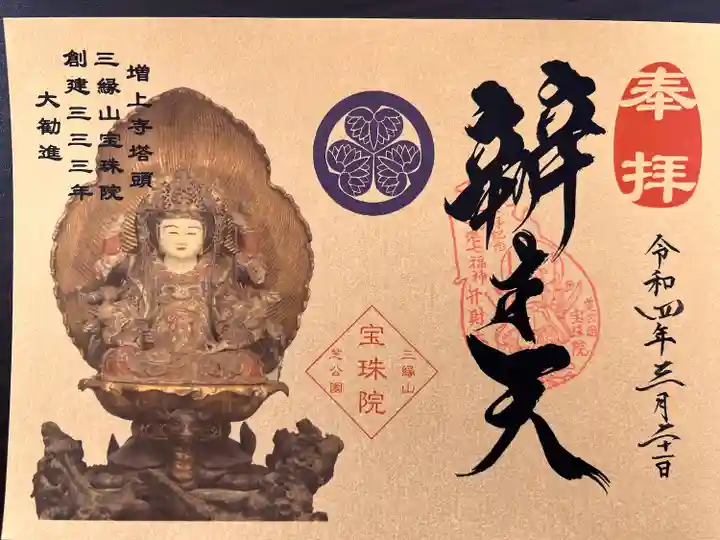 奉拝
令和四年三月二十一日
辨才天
福神弁財
芝公園
宝珠院
三縁山
宝珠院
芝公園
増上寺塔頭
三縁山宝珠院
創建三三三年
大勧進